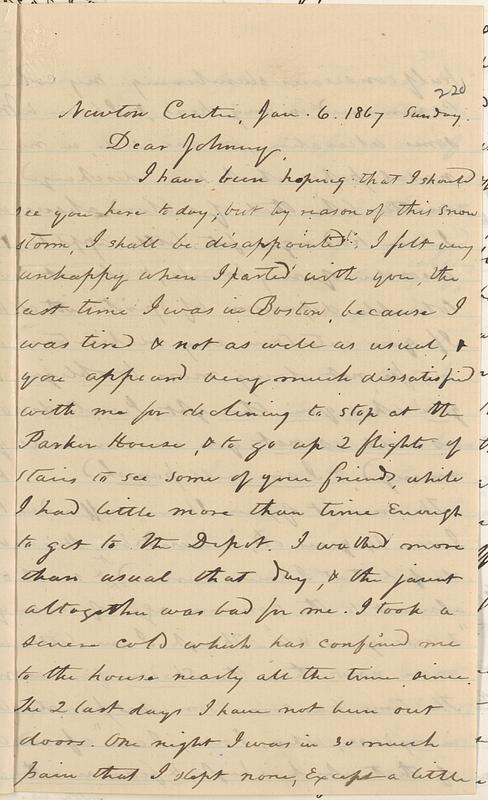 220
Newton Centre, Jan. 6. 1867 Sunday.
Dear Johnny,
I have been hoping that I should
see you here to day, but by reason of this snow
storm, I shall be disappointed. I felt very
unhappy when I parted with you, the
last time I was in Boston, because I
was tired & not as well as usual, &
you appeared very much dissatisfied
with me for declining to stop at the
Parker House, & to go up 2 flights of
stairs to see some of your friends, while
I had little more than time enough
to get to the Depot. I walked more
than usual that day, & the jaunt
altogether was bad for me. I took a
severe cold which has confined me
to the house nearly all the time since.
The 2 last days I have not been out
doors. One night I was in so much
pain that I slept none, except a little